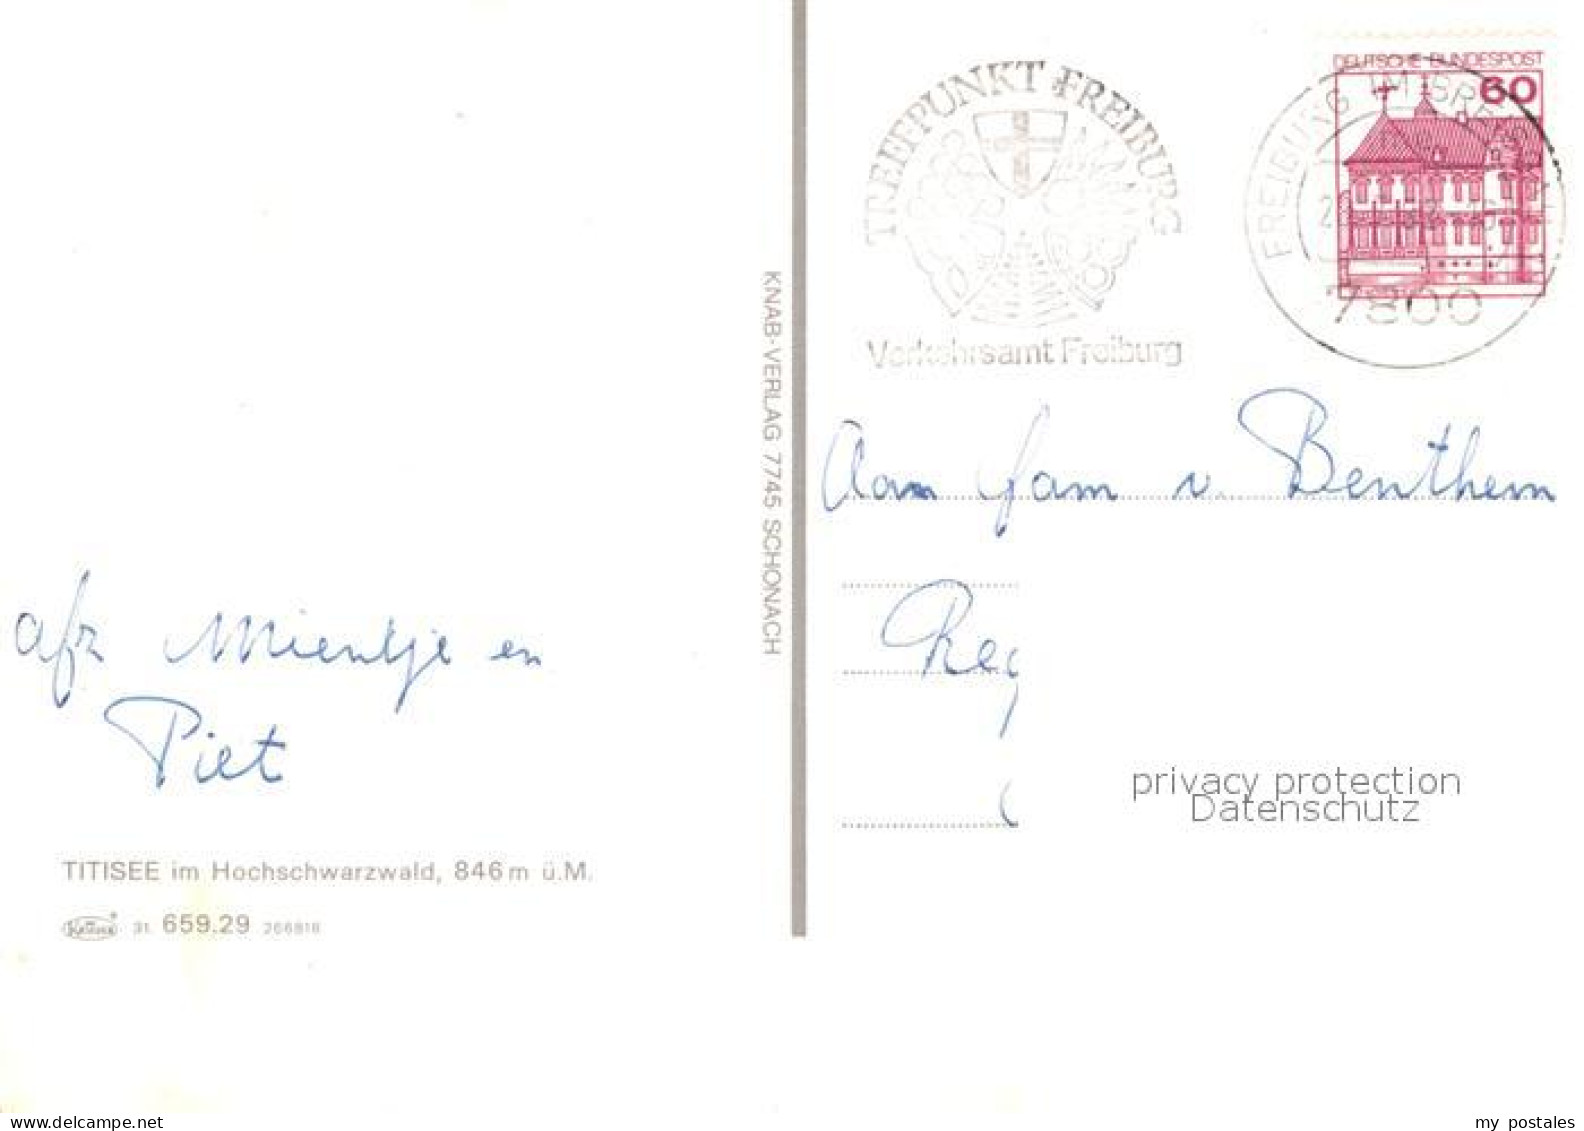 afz Mientje en
Piet
TITISEE im Hochschwarzwald, 846 m ü.M.
31 659.29 266818
KNAB-VERLAG 7745 SCHONACH
TREFFPUNKT FREIBURG
Verkehrsamt Freiburg
DEUTSCHE BUNDESPOST
60
FREIBURG IM BREISGAU
7800
Aan fam v. Benthem
privacy protection
Datenschutz
my postales